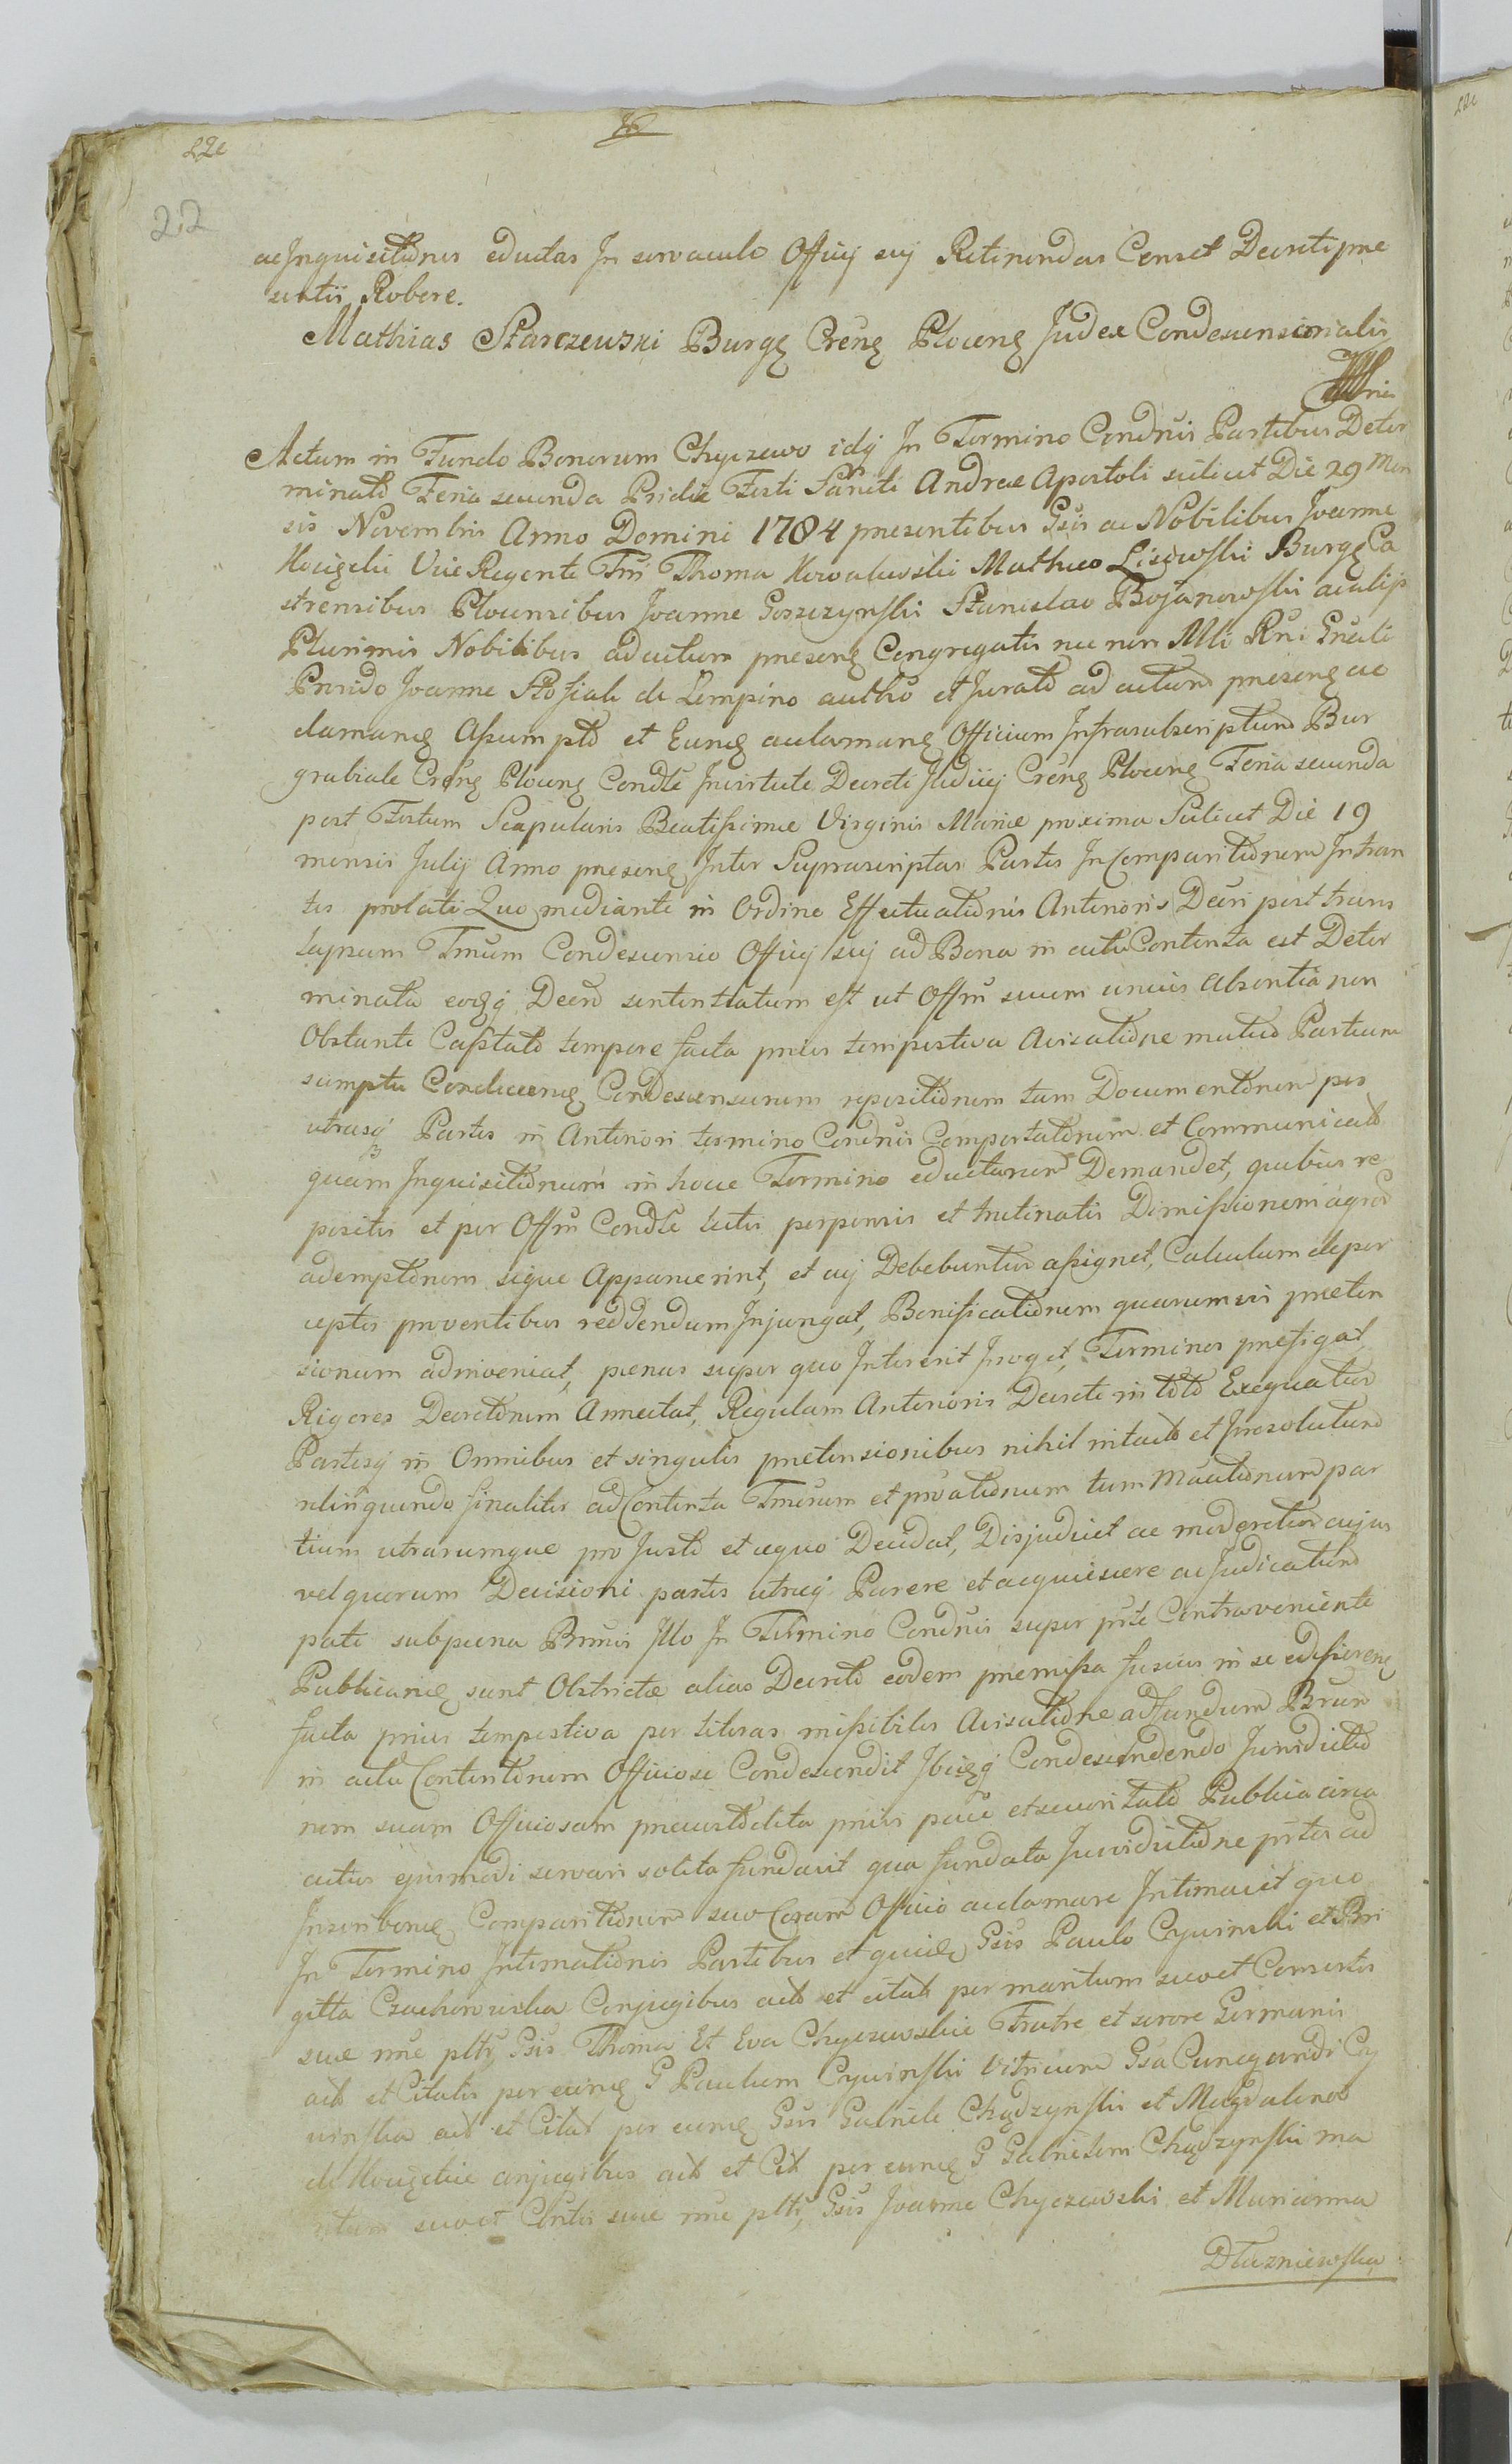 22e
22
ac Inquisitiones eductas In servaculo Officij sui Retinendas Censet Decreti prae
sentis Robore.
Mathias Starczewski Burgs Crens Plocens Judex Condescensionalis
Actum in Fundo Bonorum Chyczewo idq In Termino Condnis Partibus Deter
minato Feria secunda Pridie Festi Sancti Andreae Apostoli scilicet Die 29 Men
sis Novembris Anno Domini 1784 praesentibus Gsis ac Nobilibus Joanne
Vice Regente Thoma Kowalewski Matheo Lisowski Burgs Ca
strensibus Plocensibus Joanne Goszczynski Stanislao Bojanowski ac alijs
Plurimis Nobilibus ad actum praesens Congregatis nec non Mli Rni Gnali
Provido Joanne de Lempino autho et Jurato ad actum praesens ac
clamans Assumpto et Euns aclamans Officium Infrascriptum Bur
grabiale Crens Plocens Condle In virtute Decreti Judicij Crens Plocens Feria secunda
post Festum Scapularis Beatissimae Virginis Mariae proxima Scilicet Die 19
mensis Julij Anno praesens Inter Suprascriptas Partes In Comparitionem Intran
tes prolati Quo mediante in Ordine Effectuationis Anterioris Decri post trans
lapsum Tmum Condescensio Officij sui ad Bona in actu Contenta est Deter
minata eodq Decro sententiatum est ut Offm suum unius absentia non
Obstante Captato tempore facta prius tempestiva Avisatione mutuo Partium
sumptu Conducens Condescensurum repositionem tam Documentorum per
utrasq Partes in Anteriori termino Condnis Comportatorum et Communicato
quam Inquisitionum in hocce Termino eductarum Demandet, quibus re
positis et per Offm Condle lectis perpensis et trutinatis Dimissionem agror
ademptorum sique Apparuerint, et cuj Debebuntur assignet, Calculum de per
ceptis proventibus reddendum Injungat, Bonificationem quarumvis praeten
sionum adinveniat, paenas super quo Intererit Iroget, Terminos praefigat,
Rigores Decretorum Annectat, Regulam Anterioris Decreti in toto Exequatur
Partesq in Omnibus et singulis praetensionibus nihil intacto et Irresolutum
relinquendo finaliter ad Contenta Tmorum et tum par
tium utrarumque pro Justo et aequo Decidat, Disjudicet ac moderetur cujus
vel quorum Decisioni partes utraeq Parere et acquiescere ac Judicatum
pati sub paena Bnnis Illo In Termino Condnis super prte Contraveniente
Publicans sunt Obstrictae alias Decreto eodem praemissa fusius in se
facta prius tempestiva per literas missibiles Avisatione ad fundum Bnrum
in actu Contentorum Officiose Condescendit Ibidq Condescendendo Jurisdictio
nem suam Officiosam praecustodita prius pace et securitate Publica circa
actus ejusmodi servari solita fundavit qua fundata Jurisdictione prtes ad
Inscribens Comparitionem suo Coram Officio acclamare Intimavit quo
In Termino Intimationis Partibus et quide Gsis Paulo Cywinski et Bri
gitta Czachorowska Conjugibus acto et citat per maritum suo et Consortis
suae nne pltr, Gsis Thoma Et Eva Chyczewskie Fratre et sorore Germanis
act et Citatis per eunds G Paulum Cywinski Vitricum Gsa Cunegundi Cy
winska act et Citat per eunds Gsis Gabriele Chądzynski et Magdalena
de conjugibus act et Cit per eunds G Gabrielem Chądzynski ma
ritum suo et Cortis suae nne pltr, Gsis Joanne Chyczewski et Marianna
Dłuzniewska